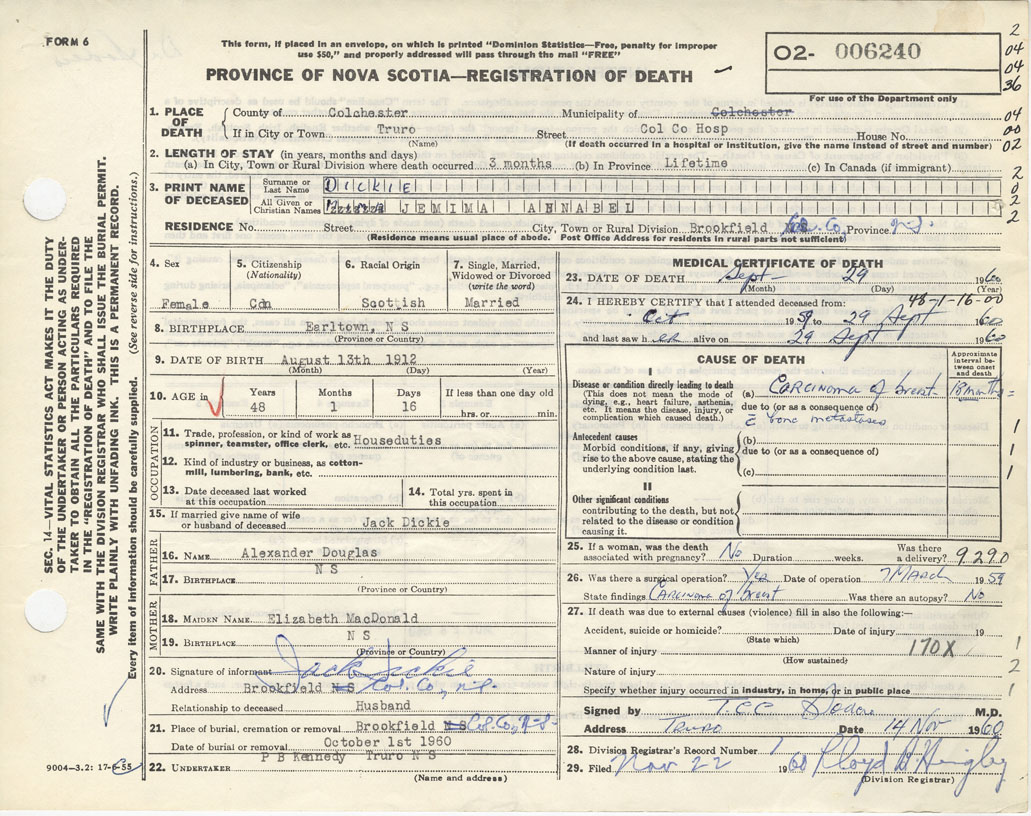 FORM 6
This form, if placed in an envelope, on which is printed "Dominion Statistics—Free, penalty for improper
use $50," and properly addressed will pass through the mail "FREE"
PROVINCE OF NOVA SCOTIA—REGISTRATION OF DEATH
02- 006240
For use of the Department only
2
04
04
36
04
00
02
2
0
2
2
1. PLACE OF DEATH
County of Colchester Municipality of Colchester
If in City or Town Truro Street Col Co Hosp House No.
(Name) (If death occurred in a hospital or institution, give the name instead of street and number)
2. LENGTH OF STAY (in years, months and days)
(a) In City, Town or Rural Division where death occurred 3 months (b) In Province Lifetime (c) In Canada (if immigrant)
3. PRINT NAME OF DECEASED
Surname or Last Name DICKIE
All Given or Christian Names JEMIMA ANNABEL
RESIDENCE No. Street City, Town or Rural Division Brookfield N S Col. Co, Province N.S.
(Residence means usual place of abode. Post Office Address for residents in rural parts not sufficient)
4. Sex
Female
5. Citizenship
(Nationality)
Cdn
6. Racial Origin
Scottish
7. Single, Married, Widowed or Divorced
(write the word)
Married
8. BIRTHPLACE Earltown, N S
(Province or Country)
9. DATE OF BIRTH August 13th 1912
(Month) (Day) (Year)
10. AGE in
Years 48
Months 1
Days 16
If less than one day old
hrs. or min.
OCCUPATION
11. Trade, profession, or kind of work as spinner, teamster, office clerk, etc. Houseduties
12. Kind of industry or business, as cotton-mill, lumbering, bank, etc.
13. Date deceased last worked at this occupation
14. Total yrs. spent in this occupation
15. If married give name of wife or husband of deceased Jack Dickie
FATHER
16. NAME Alexander Douglas
17. BIRTHPLACE N S
(Province or Country)
MOTHER
18. MAIDEN NAME Elizabeth MacDonald
19. BIRTHPLACE N S
(Province or Country)
20. Signature of informant Jack Dickie
Address Brookfield N S Col. Co, N.S.
Relationship to deceased Husband
21. Place of burial, cremation or removal Brookfield N S Col Co, N.S.
Date of burial or removal October 1st 1960
22. UNDERTAKER P B Kennedy Truro N S
(Name and address)
MEDICAL CERTIFICATE OF DEATH
23. DATE OF DEATH Sept 29 1960
(Month) (Day) (Year)
48-1-16-00
24. I HEREBY CERTIFY that I attended deceased from:
Oct 1959 to 29 Sept 1960
and last saw her alive on 29 Sept 1960
CAUSE OF DEATH
Approximate interval between onset and death
I
Disease or condition directly leading to death
(This does not mean the mode of dying, e.g., heart failure, asthenia, etc. It means the disease, injury, or complication which caused death.)
(a) Carcinoma of breast 18 months
due to (or as a consequence of)
c̄ bone metastases
Antecedent causes
Morbid conditions, if any, giving rise to the above cause, stating the underlying condition last.
(b)
due to (or as a consequence of)
(c)
1
1
1
II
Other significant conditions
contributing to the death, but not related to the disease or condition causing it.
25. If a woman, was the death associated with pregnancy? No Duration weeks. Was there a delivery?
9290
26. Was there a surgical operation? Yes Date of operation 7 March 1959
State findings Carcinoma of breast Was there an autopsy? No
27. If death was due to external causes (violence) fill in also the following:—
Accident, suicide or homicide? Date of injury 19
(State which)
Manner of injury 170X 1
(How sustained)
Nature of injury 2
Specify whether injury occurred in industry, in home, or in public place 1
Signed by M.D.
Address Truro Date 14 Nov 1960
28. Division Registrar's Record Number
29. Filed Nov 22 1960 Lloyd
(Division Registrar)
SEC. 14—VITAL STATISTICS ACT MAKES IT THE DUTY
OF THE UNDERTAKER OR PERSON ACTING AS UNDER-
TAKER TO OBTAIN ALL THE PARTICULARS REQUIRED
IN THE "REGISTRATION OF DEATH" AND TO FILE THE
SAME WITH THE DIVISION REGISTRAR WHO SHALL ISSUE THE BURIAL PERMIT.
WRITE PLAINLY WITH UNFADING INK. THIS IS A PERMANENT RECORD.
Every item of information should be carefully supplied. (See reverse side for instructions.)
9004-3.2: 17-6-55